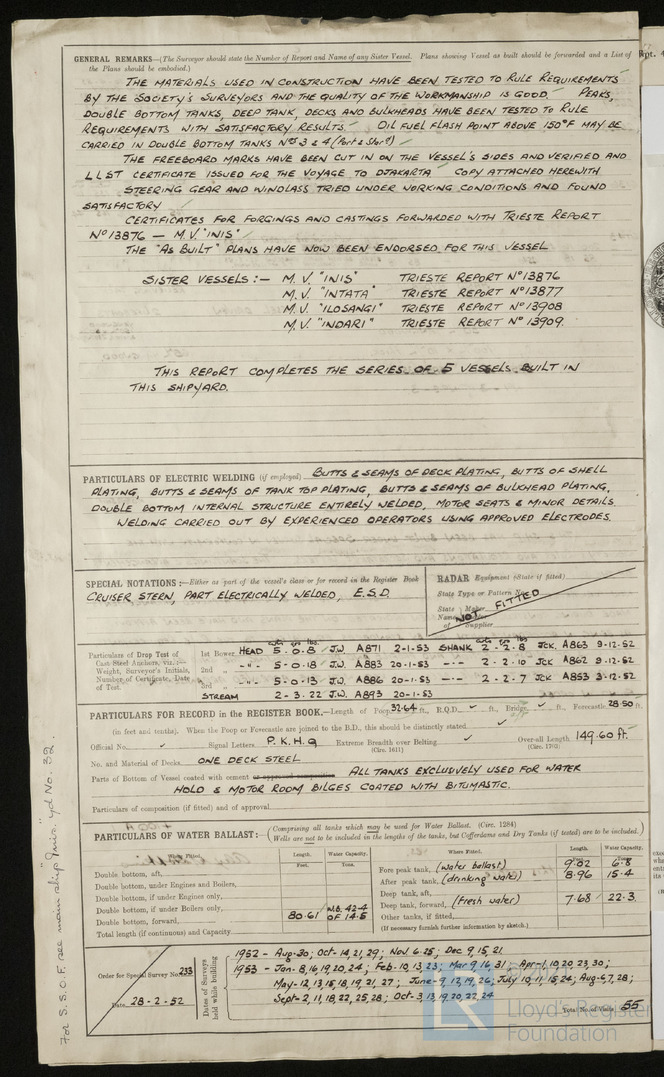 GENERAL REMARKS—(The Surveyor should state the Number of Report and Name of any Sister Vessel. Plans showing Vessel as built should be forwarded and a List of
the Plans should be embodied.)
THE MATERIALS USED IN CONSTRUCTION HAVE BEEN TESTED TO RULE REQUIREMENTS
BY THE SOCIETY'S SURVEYORS AND THE QUALITY OF THE WORKMANSHIP IS GOOD PEAKS,
DOUBLE BOTTOM TANKS, DEEP TANK, DECKS AND BULKHEADS HAVE BEEN TESTED TO RULE
REQUIREMENTS WITH SATISFACTORY RESULTS. OIL FUEL FLASH POINT ABOVE 150°F MAY BE
CARRIED IN DOUBLE BOTTOM TANKS Nos 3 & 4 (Port & Starb'd)
THE FREEBOARD MARKS HAVE BEEN CUT IN ON THE VESSEL'S SIDES AND VERIFIED AND
L L ST CERTIFICATE ISSUED FOR THE VOYAGE TO DJAKARTA COPY ATTACHED HEREWITH
STEERING GEAR AND WINDLASS TRIED UNDER WORKING CONDITIONS AND FOUND
SATISFACTORY
CERTIFICATES FOR FORGINGS AND CASTINGS FORWARDED WITH TRIESTE REPORT
No 13876 — M.V. "INIS"
THE "AS BUILT" PLANS HAVE NOW BEEN ENDORSED FOR THIS VESSEL
SISTER VESSELS:— M.V. "INIS" TRIESTE REPORT No 13876
M.V. "INTATA" TRIESTE REPORT No 13877
M.V. "ILOSANGI" TRIESTE REPORT No 13908
M.V. "INDARI" TRIESTE REPORT No 13909.
THIS REPORT COMPLETES THE SERIES OF 5 VESSELS BUILT IN
THIS SHIPYARD.
PARTICULARS OF ELECTRIC WELDING (if employed) BUTTS & SEAMS OF DECK PLATING, BUTTS OF SHELL
PLATING, BUTTS & SEAMS OF TANK TOP PLATING, BUTTS & SEAMS OF BULKHEAD PLATING,
DOUBLE BOTTOM INTERNAL STRUCTURE ENTIRELY WELDED, MOTOR SEATS & MINOR DETAILS.
WELDING CARRIED OUT BY EXPERIENCED OPERATORS USING APPROVED ELECTRODES.
SPECIAL NOTATIONS:—Either as part of the vessel's class or for record in the Register Book
CRUISER STERN, PART ELECTRICALLY WELDED, E.S.D.
RADAR Equipment (State if fitted)
State Type or Pattern No.
State Maker
Name
of Supplier
NOT FITTED
Particulars of Drop Test of
Cast Steel Anchors, viz.:—
Weight, Surveyor's Initials,
Number of Certificate, Date
of Test.
cwts qrs lbs. cwts qrs lbs
1st Bower HEAD 5-0-8 J.W. A871 2-1-53 SHANK 2-2-8 JCK. A863 9-12-52
2nd " -"- 5-0-18 J.W. A883 20-1-53 -"- 2-2-10 JCK A862 9-12-52
3rd " -"- 5-0-13 J.W. A886 20-1-53 -"- 2-2-7 JCK A853 3-12-52
STREAM 2-3-22 J.W. A893 20-1-53
PARTICULARS FOR RECORD in the REGISTER BOOK.—Length of Poop 32·64 ft., R.Q.D. ft., Bridge ft., Forecastle 28·50 ft.
(in feet and tenths). When the Poop or Forecastle are joined to the B.D., this should be distinctly stated
Official No. Signal Letters P.K.H.Q Extreme Breadth over Belting (Circ. 1611) Over-all Length (Circ. 1703) 149.60 ft.
No. and Material of Decks ONE DECK STEEL
Parts of Bottom of Vessel coated with cement or approved composition ALL TANKS EXCLUSIVELY USED FOR WATER
HOLD & MOTOR ROOM BILGES COATED WITH BITUMASTIC.
Particulars of composition (if fitted) and of approval
PARTICULARS OF WATER BALLAST:—(Comprising all tanks which may be used for Water Ballast. (Circ. 1284)
Wells are not to be included in the lengths of the tanks, but Cofferdams and Dry Tanks (if tested) are to be included.)
Where Fitted. Length. Water Capacity.
Feet. Tons.
Double bottom, aft,
Double bottom, under Engines and Boilers,
Double bottom, if under Engines only,
Double bottom, if under Boilers only,
Double bottom, forward,
Total length (if continuous) and Capacity
80·61 W.B. 42·4
OF 14·5
Where Fitted. Length. Water Capacity.
Fore peak tank, (water ballast) 9·02 6·8
After peak tank, (drinking water) 8·96 15·4
Deep tank, aft,
Deep tank, forward, (Fresh water) 7·68 22·3
Other tanks, if fitted,
(If necessary furnish further information by sketch.)
Order for Special Survey No. 233
Date 28-2-52
Dates of Surveys
held while building
1952 - Aug-30; Oct-14,21,29; Nov 6-25; Dec 9,15,21
1953 - Jan-8,16,19,20,24; Feb-10,13,23; Mar 9,16,31; Apr-1,10,20,23,30;
May-12,13,15,18,19,21,27; June-9,12,19,26; July 10,11,15,24; Aug-6,7,28;
Sept-2,11,18,22,25,28; Oct-3,13,19,20,22,24
Total No. of Visits 55
For S.S.O.F. see main ship "Inis" yd No. 32.
Rpt. 4
LR
© 2021
Lloyd's Register
Foundation